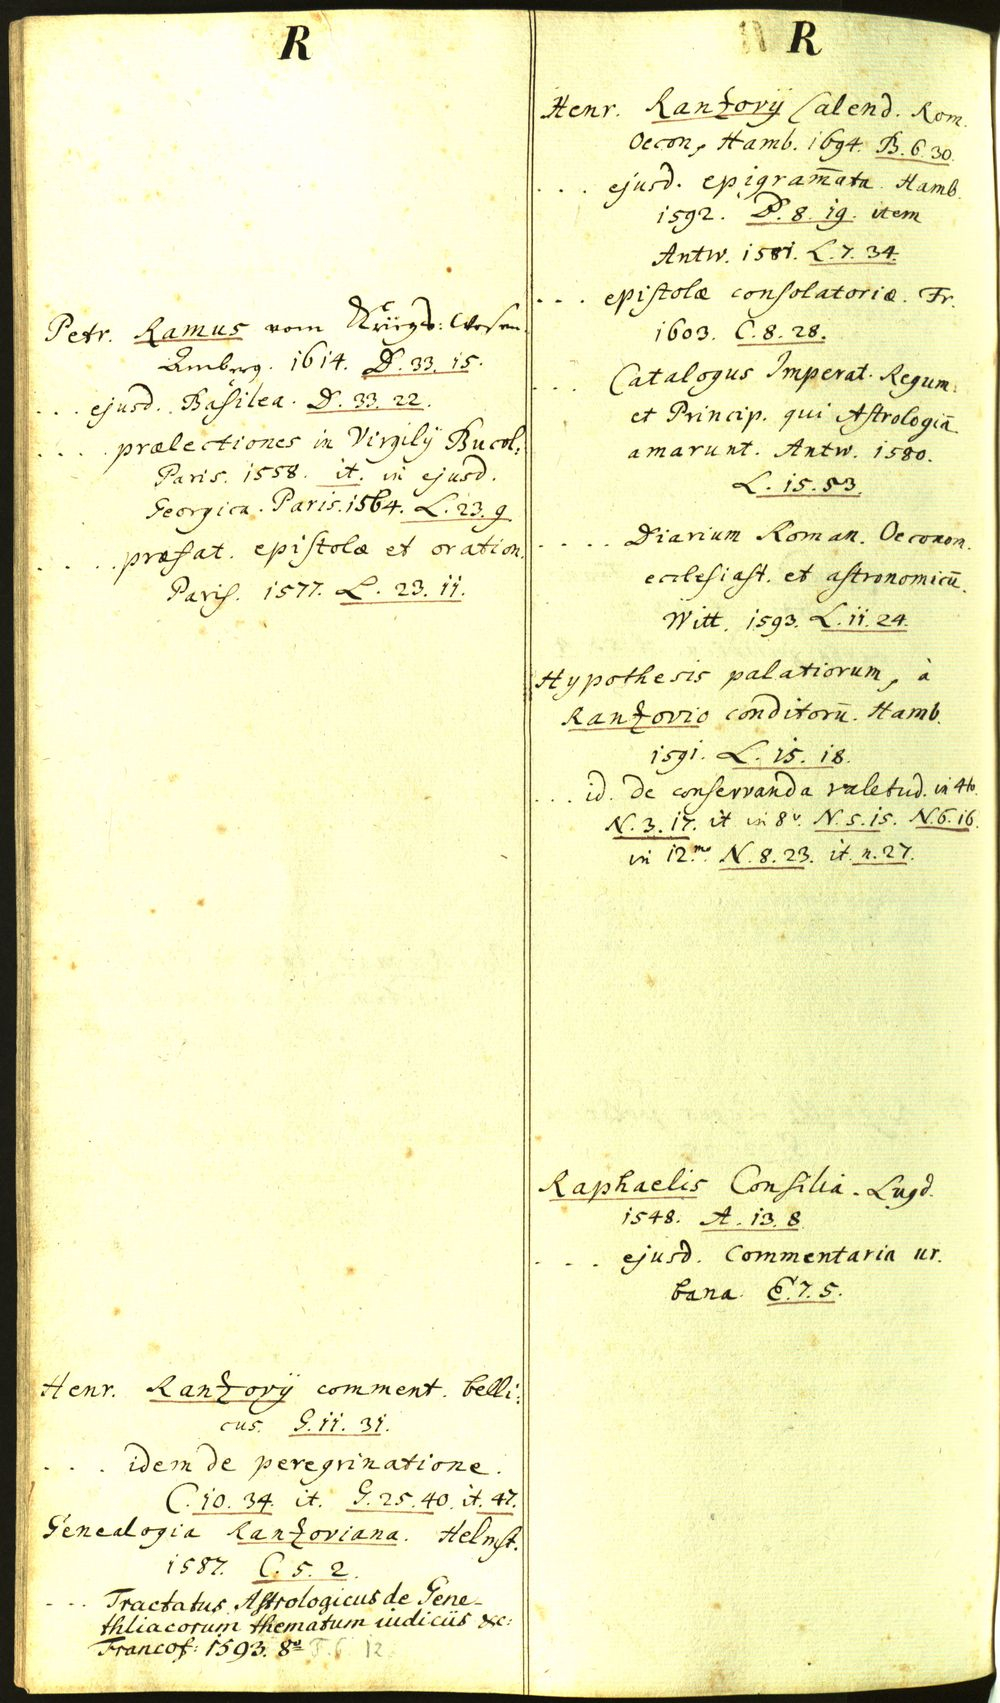 R
Petr. Ramus vom Kriegs: Wesen
Amberg. 1614. D. 33. 15.
... ejusd. Basilea. D. 33. 22.
.... prælectiones in Virgilÿ Bucol:
Paris. 1558. it. in ejusd.
Georgica. Paris. 1564. L. 23. 9
.... præfat. epistolæ et oration.
Paris. 1577. L. 23. 11.
Henr. Ranzovÿ comment. belli:
cus. G. 11. 31.
... idem de peregrinatione.
C. 10. 34. it. G. 25. 40. it. 47.
Genealogia Ranzoviana. Helmst.
1587. C. 5. 2.
... Tractatus Astrologicus de Gene-
thliacorum thematum iudiciis &c:
Francof: 1593. 8º 12
R
Henr. Ranzovÿ Calend. Rom.
Oecon, Hamb. 1694. B. 6. 30.
... ejusd. epigram̄ata Hamb.
1592. D. 8. 19. item
Antw. 1581. L. 7. 34.
... epistolæ consolatoriæ. Fr.
1603. C. 8. 28.
... Catalogus Imperat. Regum.
et Princip. qui Astrologiā
amarunt. Antw. 1580.
L. 15. 53.
.... Diarium Roman. Oeconom.
ecclesiast. et astronomicū.
Witt. 1593. L. 11. 24.
Hypothesis palatiorum, à
Ranzovio conditorū. Hamb.
1591. L. 15. 18.
... id. de conservanda valetud. in 4to.
N. 3. 17. it in 8º. N. 5. 15. N. 6. 16.
in 12.mo N. 8. 23. it. n. 27.
Raphaelis Consilia. Lugd.
1548. A. 13. 8
... ejusd. Commentaria ur.
bana. E. 7. 5.